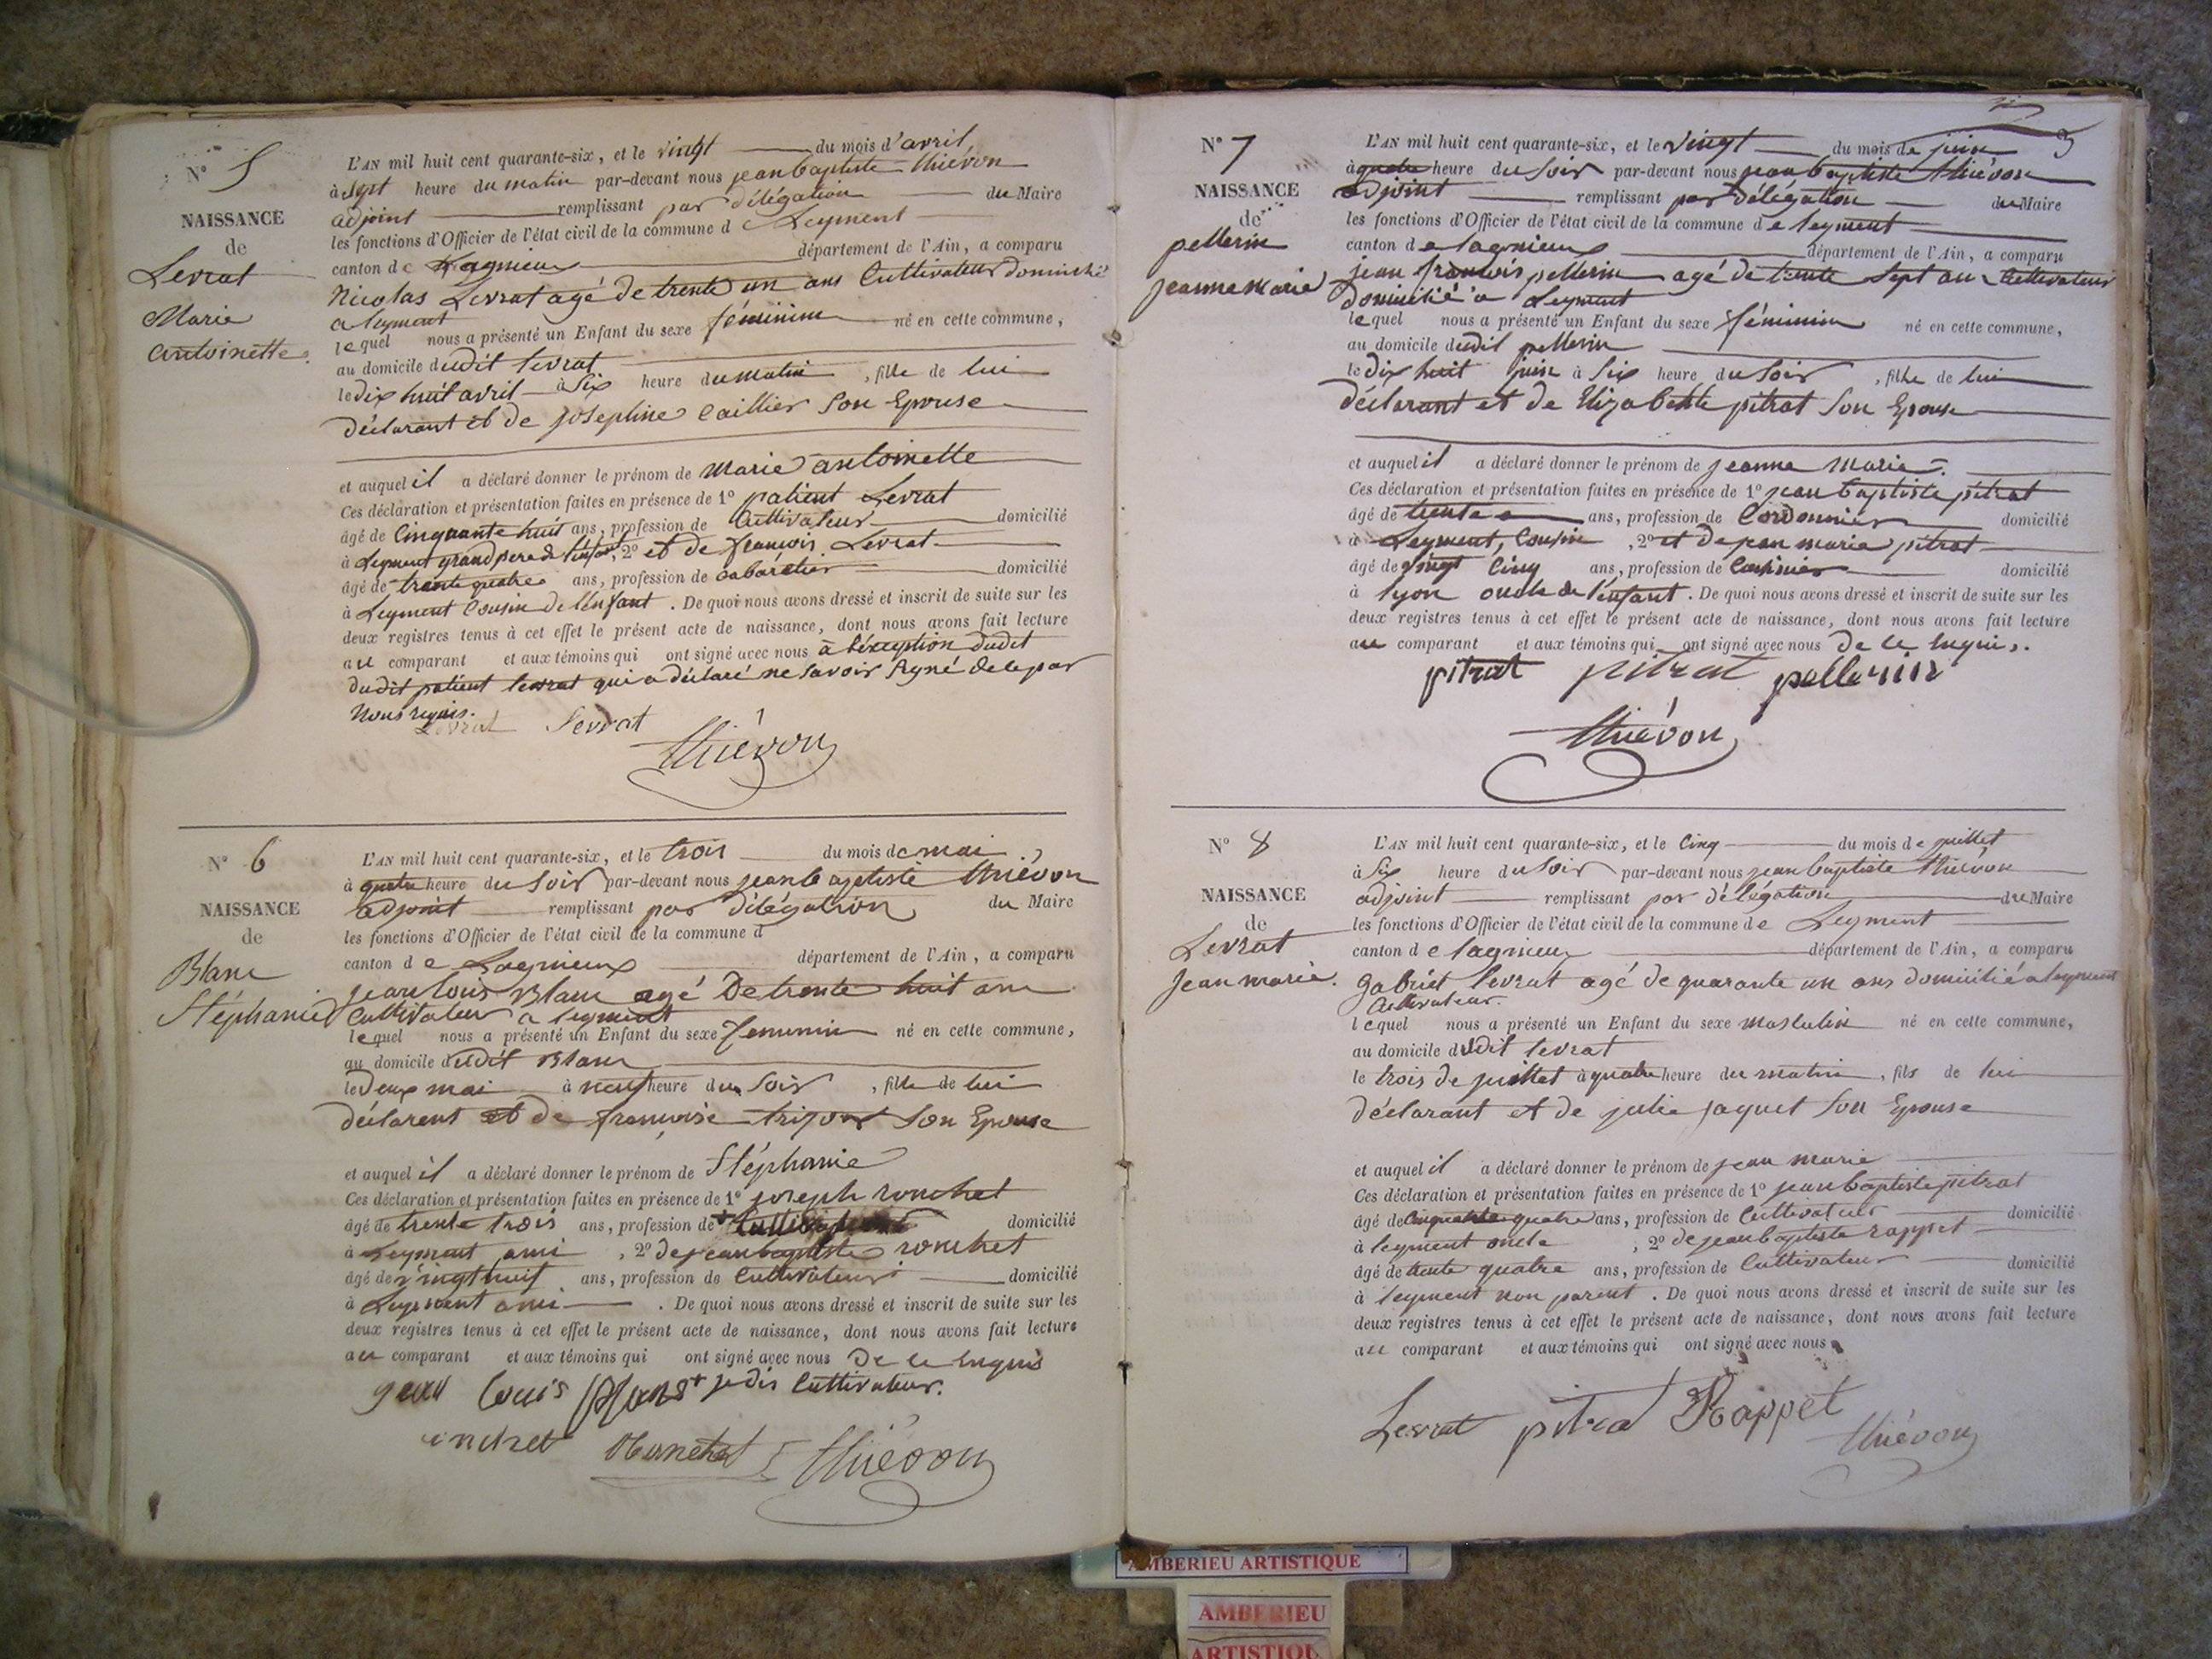 N° 5
NAISSANCE
de
Levrat
Marie
antoinette.
L'AN mil huit cent quarante-six, et le vingt du mois d'avril
à sept heure du matin par-devant nous jean baptiste thiévon
adjoint remplissant par délégation du Maire
les fonctions d'Officier de l'état civil de la commune d e Leyment
canton de Lagnieu département de l'Ain, a comparu
Nicolas Levrat agé de trente un ans Cultivateur domicilié
a leyment
lequel nous a présenté un Enfant du sexe féminin né en cette commune,
au domicile dudit levrat
le dix huit avril à six heure du matin, fille de lui
déclarant et de josephine Caillier son Epouse
et auquel il a déclaré donner le prénom de marie antoinette
Ces déclaration et présentation faites en présence de 1° patient Levrat
âgé de Cinquante huit ans, profession de Cultivateur domicilié
à Leyment grand pere de l'enfant, 2° et de françois Levrat
âgé de trente quatre ans, profession de Cabaretier domicilié
à Leyment Cousin de l'enfant. De quoi nous avons dressé et inscrit de suite sur les
deux registres tenus à cet effet le présent acte de naissance, dont nous avons fait lecture
au comparant et aux témoins qui ont signé avec nous à l'éxception dudit
dudit patient levrat qui a déclaré ne savoir signé de ce par
nous requis.
Levrat Levrat
thiévon
N° 6
NAISSANCE
de
Blanc
Stéphanie
L'AN mil huit cent quarante-six, et le trois du mois de mai
à quatre heure du soir par-devant nous jean baptiste thiévon
adjoint remplissant par délégation du Maire
les fonctions d'Officier de l'état civil de la commune d
canton d e Lagnieux département de l'Ain, a comparu
jean louis Blanc agé de trente huit ans
Cultivateur a leyment
lequel nous a présenté un Enfant du sexe femenin né en cette commune,
au domicile dudit Blanc
le deux mai à neuf heure du soir, fille de lui
déclarent et de françoise son Epouse
et auquel il a déclaré donner le prénom de Stéphanie
Ces déclaration et présentation faites en présence de 1° joseph ronchet
âgé de trente trois ans, profession de + domicilié
à Leyment ami, 2° de jean baptiste ronchet
âgé de vingt huit ans, profession de Cultivateur domicilié
à Leyment ami. De quoi nous avons dressé et inscrit de suite sur les
deux registres tenus à cet effet le présent acte de naissance, dont nous avons fait lecture
au comparant et aux témoins qui ont signé avec nous de ce enquis
jean louis Blanc + je dis Cultivateur.
Ronchet thiévon
N° 7
NAISSANCE
de
pellerin
jeanne marie
3
L'AN mil huit cent quarante-six, et le vingt du mois de juin
à quatre heure du soir par-devant nous jean baptiste thiévon
adjoint remplissant par délégation du Maire
les fonctions d'Officier de l'état civil de la commune d e leyment
canton d e lagnieux département de l'Ain, a comparu
jean françois pellerin agé de trente sept an Cultivateur
domicilié a Leyment
lequel nous a présenté un Enfant du sexe féminin né en cette commune,
au domicile dudit pellerin
le dix huit juin à six heure du soir, fille de lui
déclarant et de Elizabethe pitrat son Epouse
et auquel il a déclaré donner le prénom de jeanne marie.
Ces déclaration et présentation faites en présence de 1° jean baptiste pitrat
âgé de trente ans, profession de Cordonnier domicilié
à Leyment, Cousin, 2° et de jean marie pitrat
âgé de vingt Cinq ans, profession de domicilié
à lyon oncle de l'enfant. De quoi nous avons dressé et inscrit de suite sur les
deux registres tenus à cet effet le présent acte de naissance, dont nous avons fait lecture
au comparant et aux témoins qui ont signé avec nous de ce enquis.
pitrat pitrat pellerin
thiévon
N° 8
NAISSANCE
de
Levrat
jean marie.
L'AN mil huit cent quarante-six, et le Cinq du mois de juillet
à six heure du soir par-devant nous jean baptiste thiévon
adjoint remplissant par délégation du Maire
les fonctions d'Officier de l'état civil de la commune de Leyment
canton d e lagnieu département de l'Ain, a comparu
gabriel levrat agé de quarante un ans domicilié a leyment
Cultivateur.
lequel nous a présenté un Enfant du sexe masculin né en cette commune,
au domicile dudit levrat
le trois de juillet à quatre heure du matin, fils de lui
déclarant et de julie jaquet son Epouse
et auquel il a déclaré donner le prénom de jean marie
Ces déclaration et présentation faites en présence de 1° jean baptiste pitrat
âgé de Cinquante quatre ans, profession de Cultivateur domicilié
à leyment oncle, 2° de jean baptiste rappet
âgé de trente quatre ans, profession de Cultivateur domicilié
à leyment non parent. De quoi nous avons dressé et inscrit de suite sur les
deux registres tenus à cet effet le présent acte de naissance, dont nous avons fait lecture
au comparant et aux témoins qui ont signé avec nous
Levrat pitrat Rappet
thiévon
AMBERIEU ARTISTIQUE
AMBERIEU
ARTISTIQU